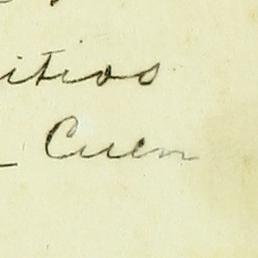 itios
Cuen